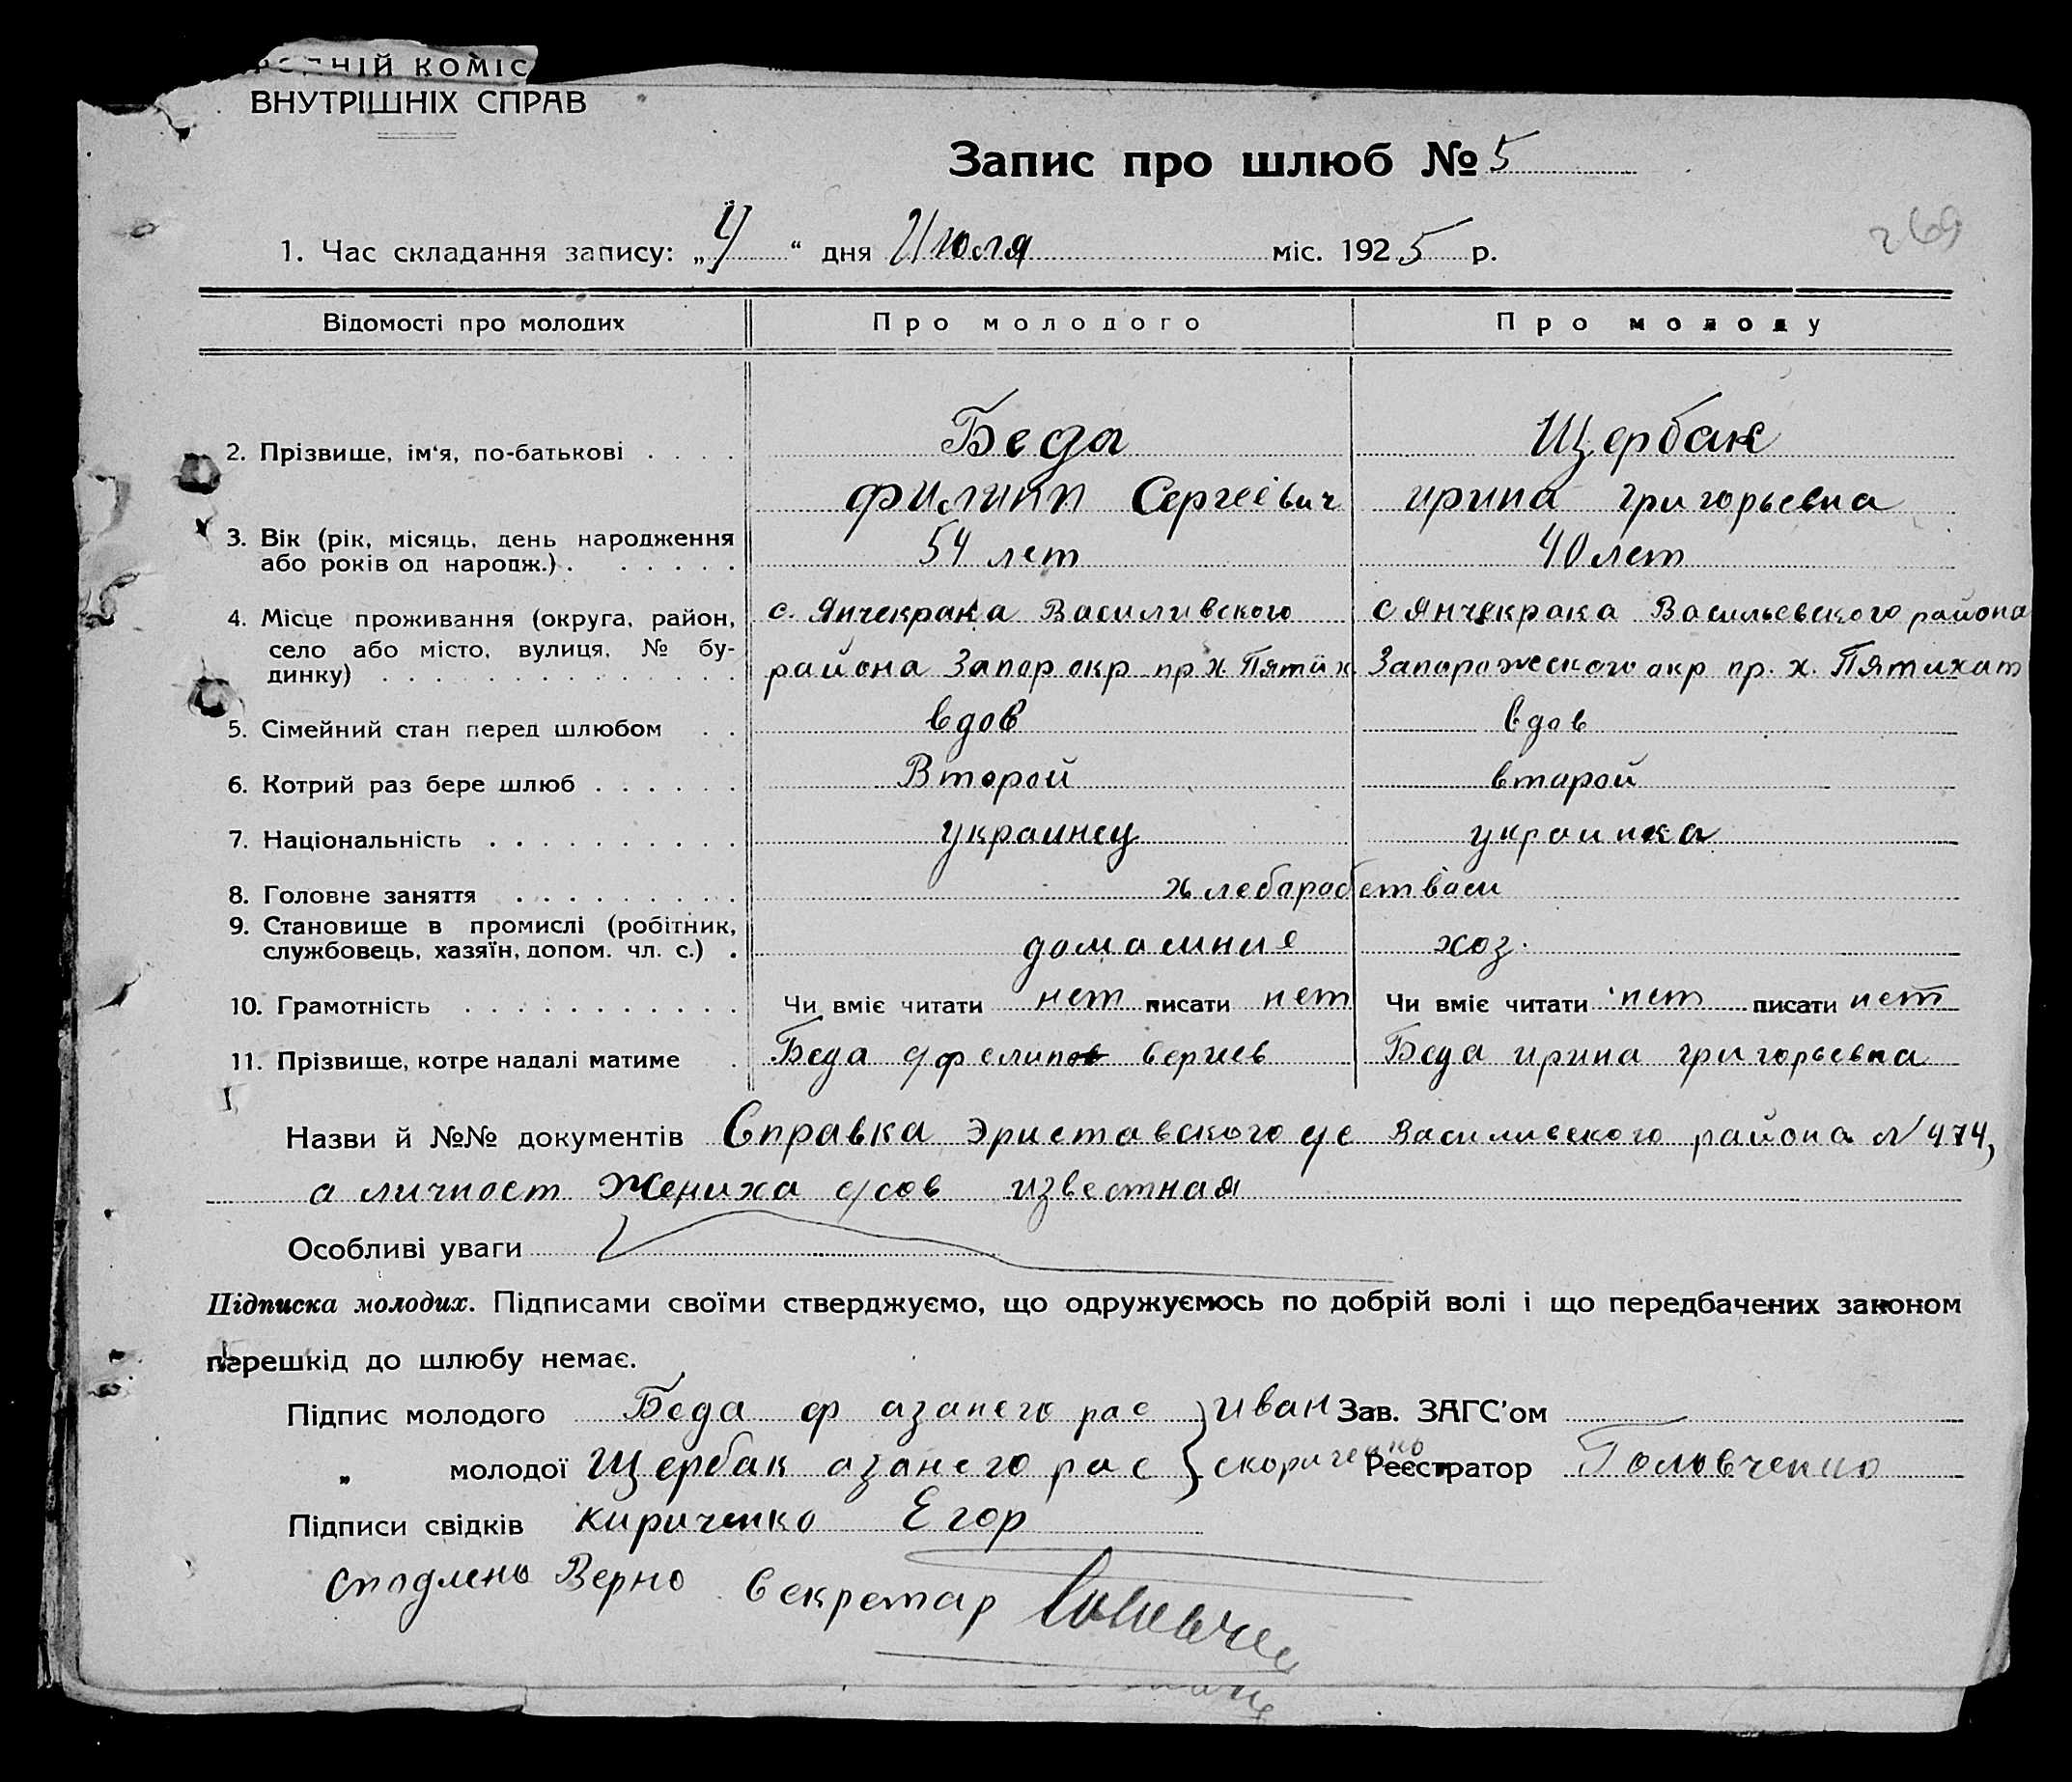 КОМІС
ВНУТРІШНІХ СПРАВ
Запис про шлюб № 5
269
1. Час складання запису: „4“ дня Июля міс. 1925 р.
Відомості про молодих Про молодого Про молоду
2. Прізвище, ім'я, по-батькові Беда Щербак
филипп Сергеевич ирина григорьевна
3. Вік (рік, місяць, день народження
або років од народж.) 54 лет 40 лет
4. Місце проживання (округа, район, с. Янчекрака Василивского с Янчекрака Васильевского района
село або місто, вулиця, № бу-
динку) района Запор окр пр х. Пятих. Запорожеского окр пр. х. Пятихат
5. Сімейний стан перед шлюбом вдов вдов
6. Котрий раз бере шлюб Второй второй
7. Національність украинец украинка
8. Головне заняття
9. Становище в промислі (робітник,
службовець, хазяїн, допом. чл. с.) домашние хоз.
10. Грамотність Чи вміє читати нет писати нет Чи вміє читати нет писати нет
11. Прізвище, котре надалі матиме Беда Беда ирина григорьевна
Назви й №№ документів Справка Эриставского с/с Василивского района N 474,
а личност Жениха с/сов известная
Особливі уваги
Підписка молодих. Підписами своїми стверджуємо, що одружуємось по добрій волі і що передбачених законом
перешкід до шлюбу немає.
Підпис молодого Беда ф азанего рас } иван Зав. ЗАГС'ом
„ молодої Щербак азанего рас } скориченко Реєстратор Головченко
Підписи свідків кириченко Егор
Верно Секретар